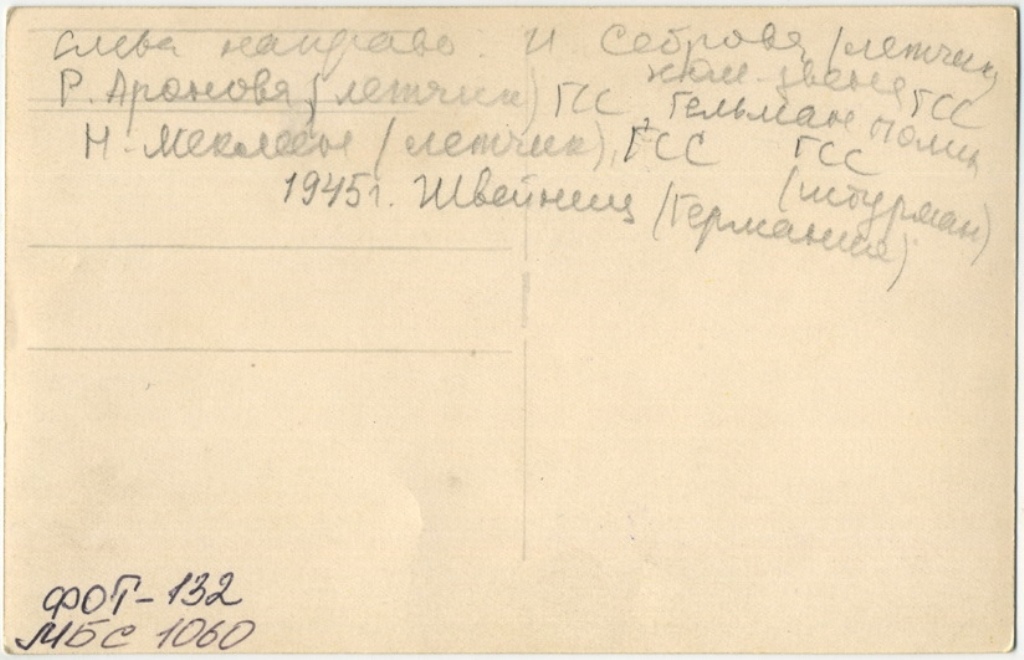 слева направо: И Себрова (летчик,
ком. звена ГСС
Р. Аронова (летчик) ГСС, Гельман Полина
ГСС
Н. Меклин (летчик), ГСС (штурман)
1945г. Швейниц (Германия)
ФОТ-132
МБС 1060